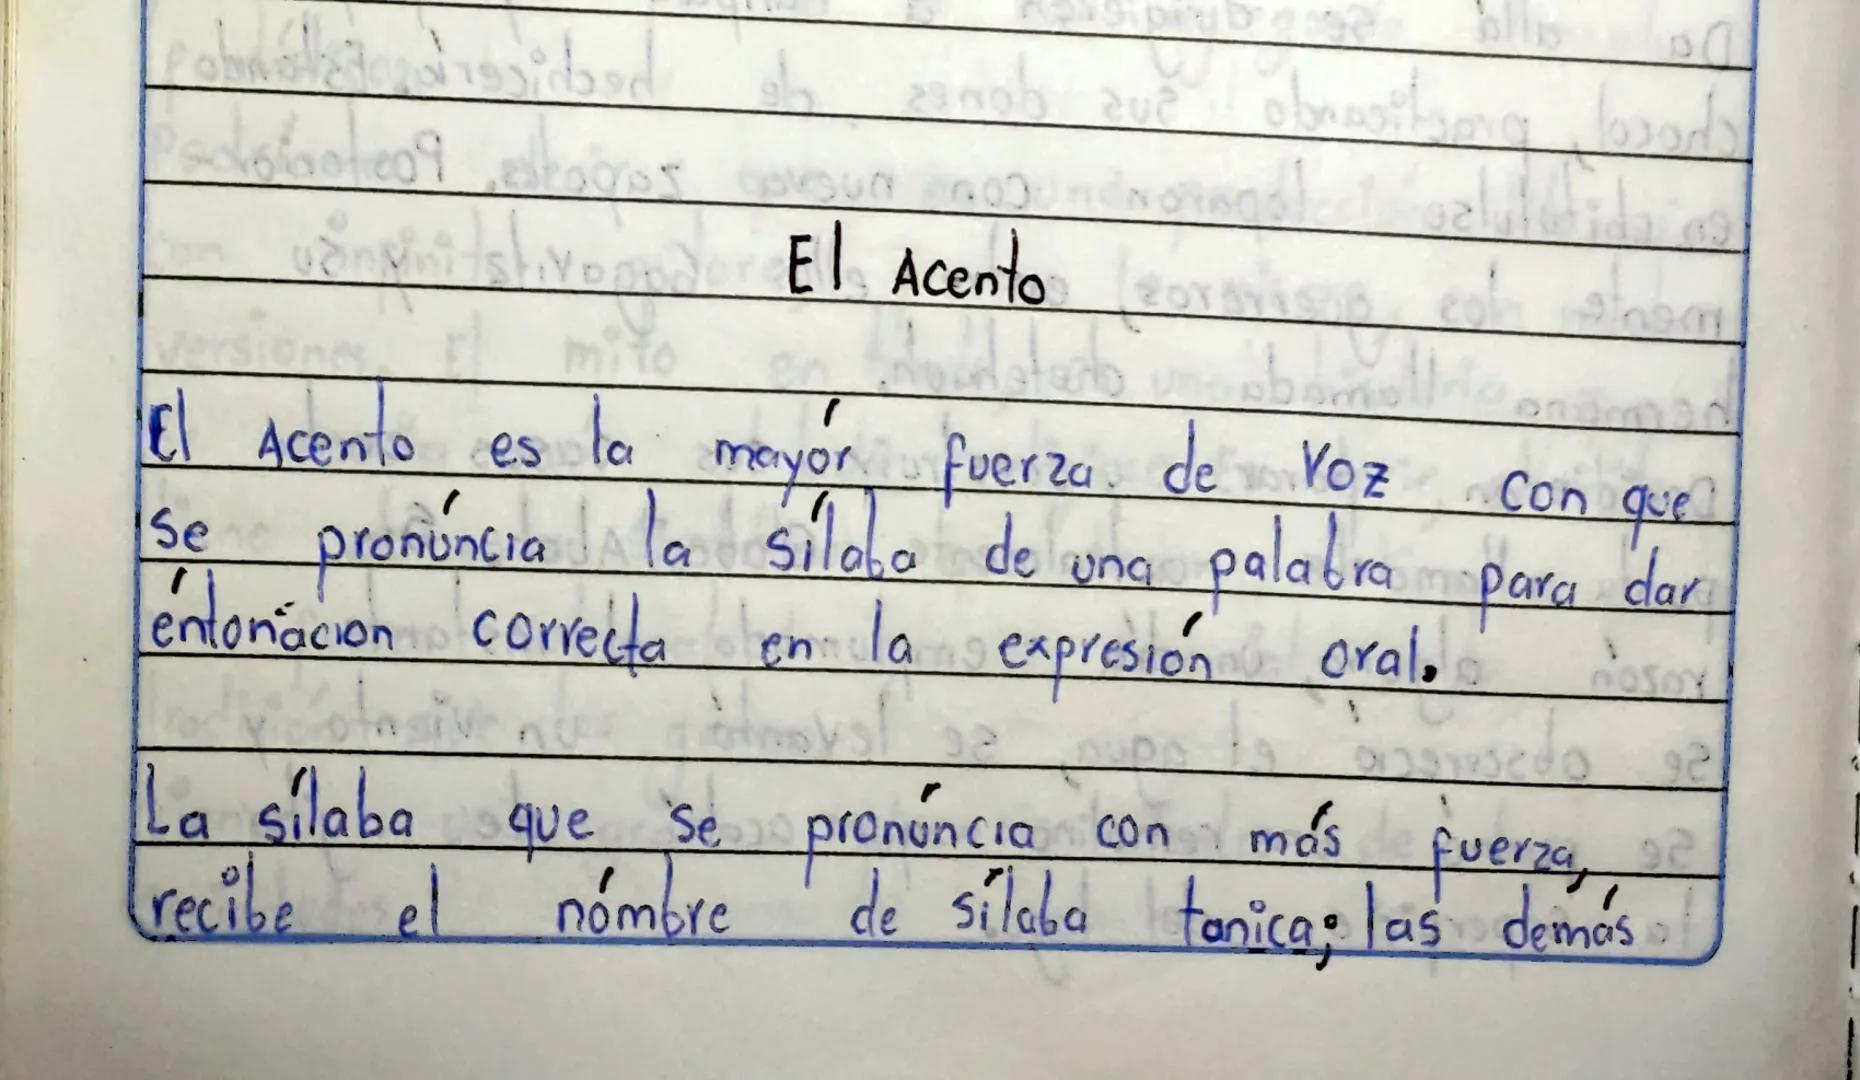 El Acento
El Acento es la mayór fuerza de Voz con que
se pronúncia la sílaba de una palabra para dar
éntonacion correcta en la expresión oral.
La sílaba que se pronúncia con más fuerza,
recibe el nómbre de sílaba tanica; las demás